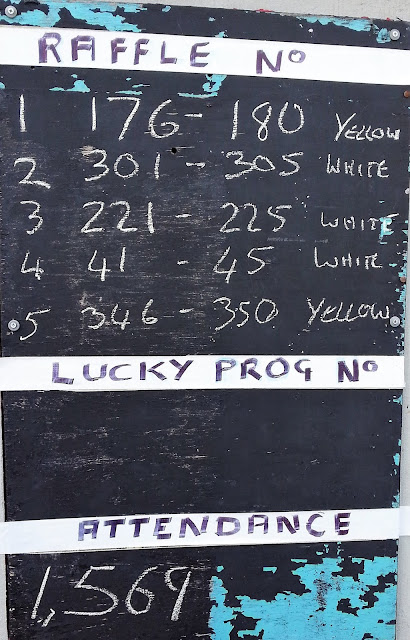 RAFFLE Nº
1 176 - 180 YELLOW
2 301 - 305 WHITE
3 221 - 225 WHITE
4 41 - 45 WHITE
5 346 - 350 YELLOW
LUCKY PROG Nº
ATTENDANCE
1,569